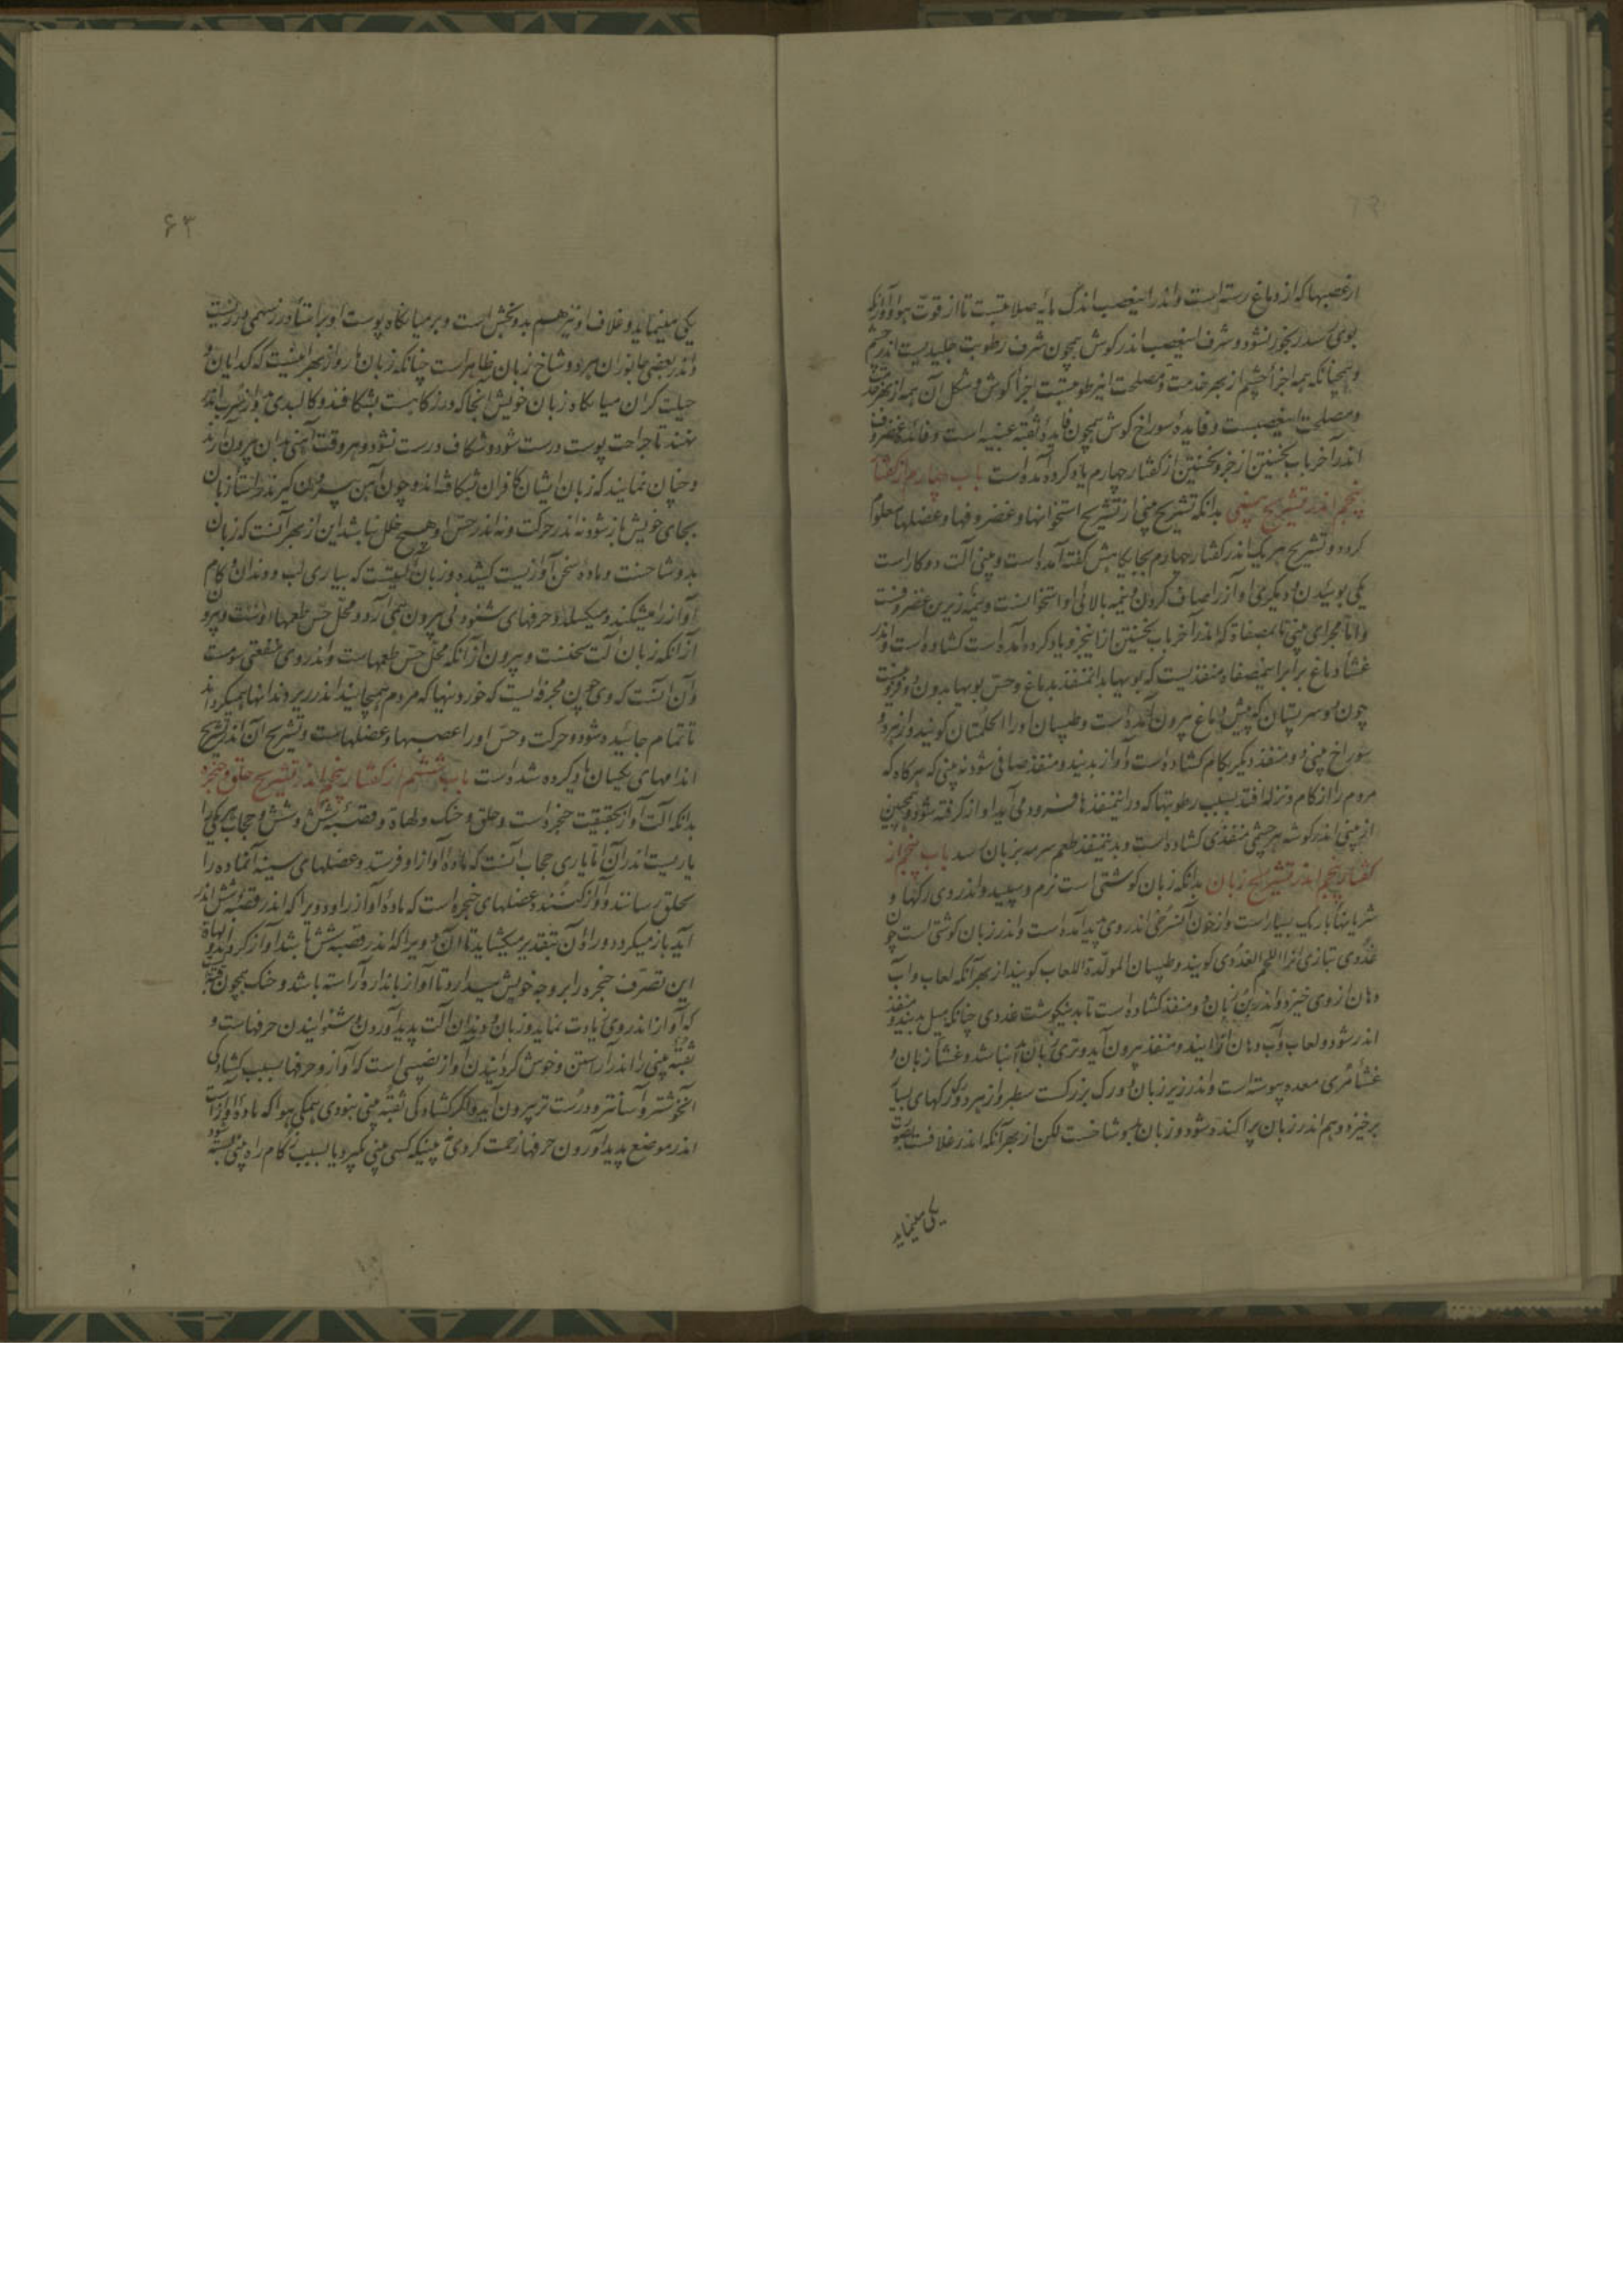 از عصبها که از دماغ رسته است و اندر این عصب اندک مایه صلابتست تا از قوت هوا و آواز که
بوی رسد رنجور نشود و شرف این عصب اندر کوش همچون شرف رطوبت جلیدیست اندر چشم
و همچنانکه همه اجزأ چشم از بهر خدمت و مصلحت این رطوبتست اجزأ کوش و شکل آن همه از بهر خدمت
و مصلحت این عصبست و فایدۀ سوراخ کوش همچون فایدۀ ثقبه عنبیه است و فائدۀ غضروف
اندر آخر باب نخستین از جزو نخستین از کفتار چهارم یاد کرده آمده است باب چهارم از کفتار
پنجم اندر تشریح بینی بدانکه تشریح بینی از تشریح استخوانها و غضروفها و عضلها معلوم
کردد و تشریح هر یک اندر کفتار چهارم بجایکاهش کفته آمده است و بینی آلت دو کار است
یکی بوئیدن و دیکر می آواز را صاف کردن و نیمه بالائی او استخوانست و نیمه زیرین غضروفست
و اما مجرای بینی تا بمصفاة که اندر آخر باب نخستین از این جزو یاد کرده آمده است کشاده است و اندر
غشأ دماغ برابر این مصفاة منفذیست که بویها بدان منفذ بدماغ و حس بویها بدون و فزونیست
چون دو سر پستان که پیش دماغ بیرون آمده است و طبیبان او را الحلمتان کویند و از هر دو
سوراخ بینی دو منفذ دیکر بکام کشاده است و آواز بدیند و منفذ صافی شود نه بینی که هرکاه که
مردم را زکام و نزله افتد بسبب رطوبتها که در این منفذها فرود می آید آواز کرفته شود و همچنین
از بینی اندر کوشه هر چشمی منفذی کشاده است و بدین منفذ طعم سرمه بزبان رسد باب پنجم از
کفتار پنجم اندر تشریح زبان بدانکه زبان کوشتی است نرم و سپید و اندر وی رکها و
شریانها باریک بسیار است و از خون آن سرخی اندر وی پدید آمده است و اندر زبان کوشتی است چون
غدوی بتازی انرا اللحم الغددی کویند و طبیبان المولدة اللعاب کویند از بهر آنکه لعاب و آب
دهان از وی خیزد و اندر بن زبان دو منفذ کشاده است تا بدین کوشت غددی چنانکه میل بدیند و منفذ
اندر شود و لعاب و آب دهان از این دو منفذ بیرون آید و تری زبان از آنها باشد و غشأ زبان و
غشأ مری معده پیوسته است و اندر زیر زبان دو رک بزرکست سطبر و از هر دو رک رکهای بسیار
برخیزد و هم اندر زبان پراکنده شود و زبان بدو شاخست لکن از بهر آنکه اندر غلافست بصورت
یکی مینماید
۶۳
یکی مینماید و غلاف او نیز هم بدو بخش است و بر میانکاه پوست او برامتداد درزی همی و درزیست
و اندر بعضی جانوران هر دو شاخ زبان ظاهر است چنانکه زبان مار و از بهر اینست که کدایان و
حیلت کران میانکاه زبان خویش انجا که درزکاهست بشکافند و کالبدی از سرب اندر
نهند تا جراحت پوست درست شود و شکاف درست نشود و هر وقت آهنی بدان بیرون زند
و چنان نمایند که زبان ایشان کافران شکافته اند و چون آهن بیرون کیرند در انشا زبان
بجای خویش باز شود نه اندر حرکت و نه اندر حس او هیچ خلل نباشد این از بهر آنست که زبان
بدو شاخست و مادۀ سخن آوازیست کشیده و زبان آلتیست که بیاری لب و دندان و کام
آواز را میشکند و میکسلد و حرفهای شنودنی بیرون همی آرد و محل حس طعمها اوست و بیرون
از آنکه زبان آلت سخنست و بیرون از آنکه محل حس طعمهاست و اندر وی منفعتی سومست
و آن آنست که وی چون مجرفه ایست که خوردنیها که مردم همی خایند اندر زیر دندانها همیکرداند
تا تمام جائیده شود و حرکت و حس او را عصبها و عضلهاست و تشریح آن اندر تشریح
اندامهای یکسان یاد کرده شده است باب ششم از کفتار پنجم اندر تشریح حلق و حنجره
بدانکه آلت آواز بحقیقت حنجره است و حلق و حنک و لهاة و قصبه شش و شش و حجاب هر یکی را
یاریست اندر آن اما یاری حجاب آنست که مادۀ آواز او فرستد و عضلهای سینه آن ماده را
بحلق رساند و آواز کننده عضلهای حنجره است که مادۀ آواز را او دو برا که اندر قصبه شش اندر
آید باز میکردد و را و آن بتقدیر میکشاید تا آن دو برا که اندر قصبه شش باشد آواز کردد و لهاة
این تصرف حنجره را بر وجه خویش میدارد تا آواز باندازه آراسته باشد و حنک همچون قبه
که آواز اندر وی زیادت نماید و زبان و دندان آلت پدید آوردن و شنوانیدن حرفهاست و
ثقبه بینی را اندر آراستن و خوش کردانیدن آواز نصیبی است که آواز و حرفها بسبب کشادکی
آن خوشتر و آسانتر و درست تر بیرون آید و اکر کشادکی ثقبه بینی نبودی همکی هوا که مادۀ آواز است
اندر موضع پدید آوردن حرفها زحمت کردی نه بینیکه کسی بینی بکیرد یا بسبب زکام راه بینی بسته شود